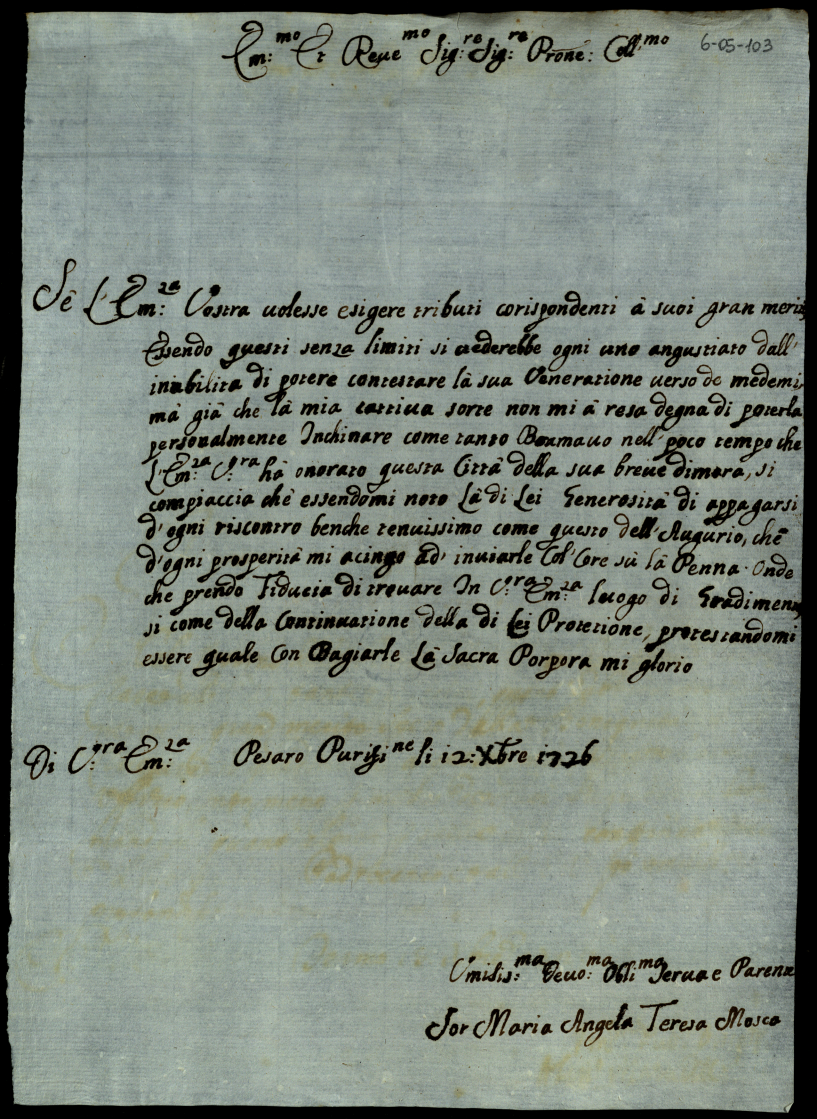 Em:mo Et Reue mo Sig:re Sig:re Prone: Coll:mo
6-05-103
Sè L'Em:za Vostra uolesse esigere tributi corispondenti à suoi gran meriti
Essendo questi senza limiti si uederebbe ogni uno angustiato dall'
inabilità di potere contestare là sua Veneratione uerso de medemi,
mà già che là mia cattiua sorte non mi à resa degna di poterla
personalmente Inchinare come tanto Bramauo nell' poco tempo che
L'Em:za V:ra hà onorato questa Città della sua breue dimora, si
compiaccia chè essendomi noto Là di Lei Generosità di appagarsi
d'ogni riscontro benche tenuissimo come questo dell'Augurio, chè
d'ogni prosperità mi acingo ad' inuiarle Col' Core sù là Penna. Onde
che prendo Fiducia di trouare In V:ra Em:za luogo di Gradimento
si come della Continuatione della di Lei Protetione, protestandomi
essere quale Con Bagiarle Là Sacra Porpora mi glorio
Di V:ra Em:za Pesaro Purifi ne li 12: Xbre 1726
Umilis:ma Deuo:ma Obli:ma Serua e Parente
Sor Maria Angela Teresa Mosca